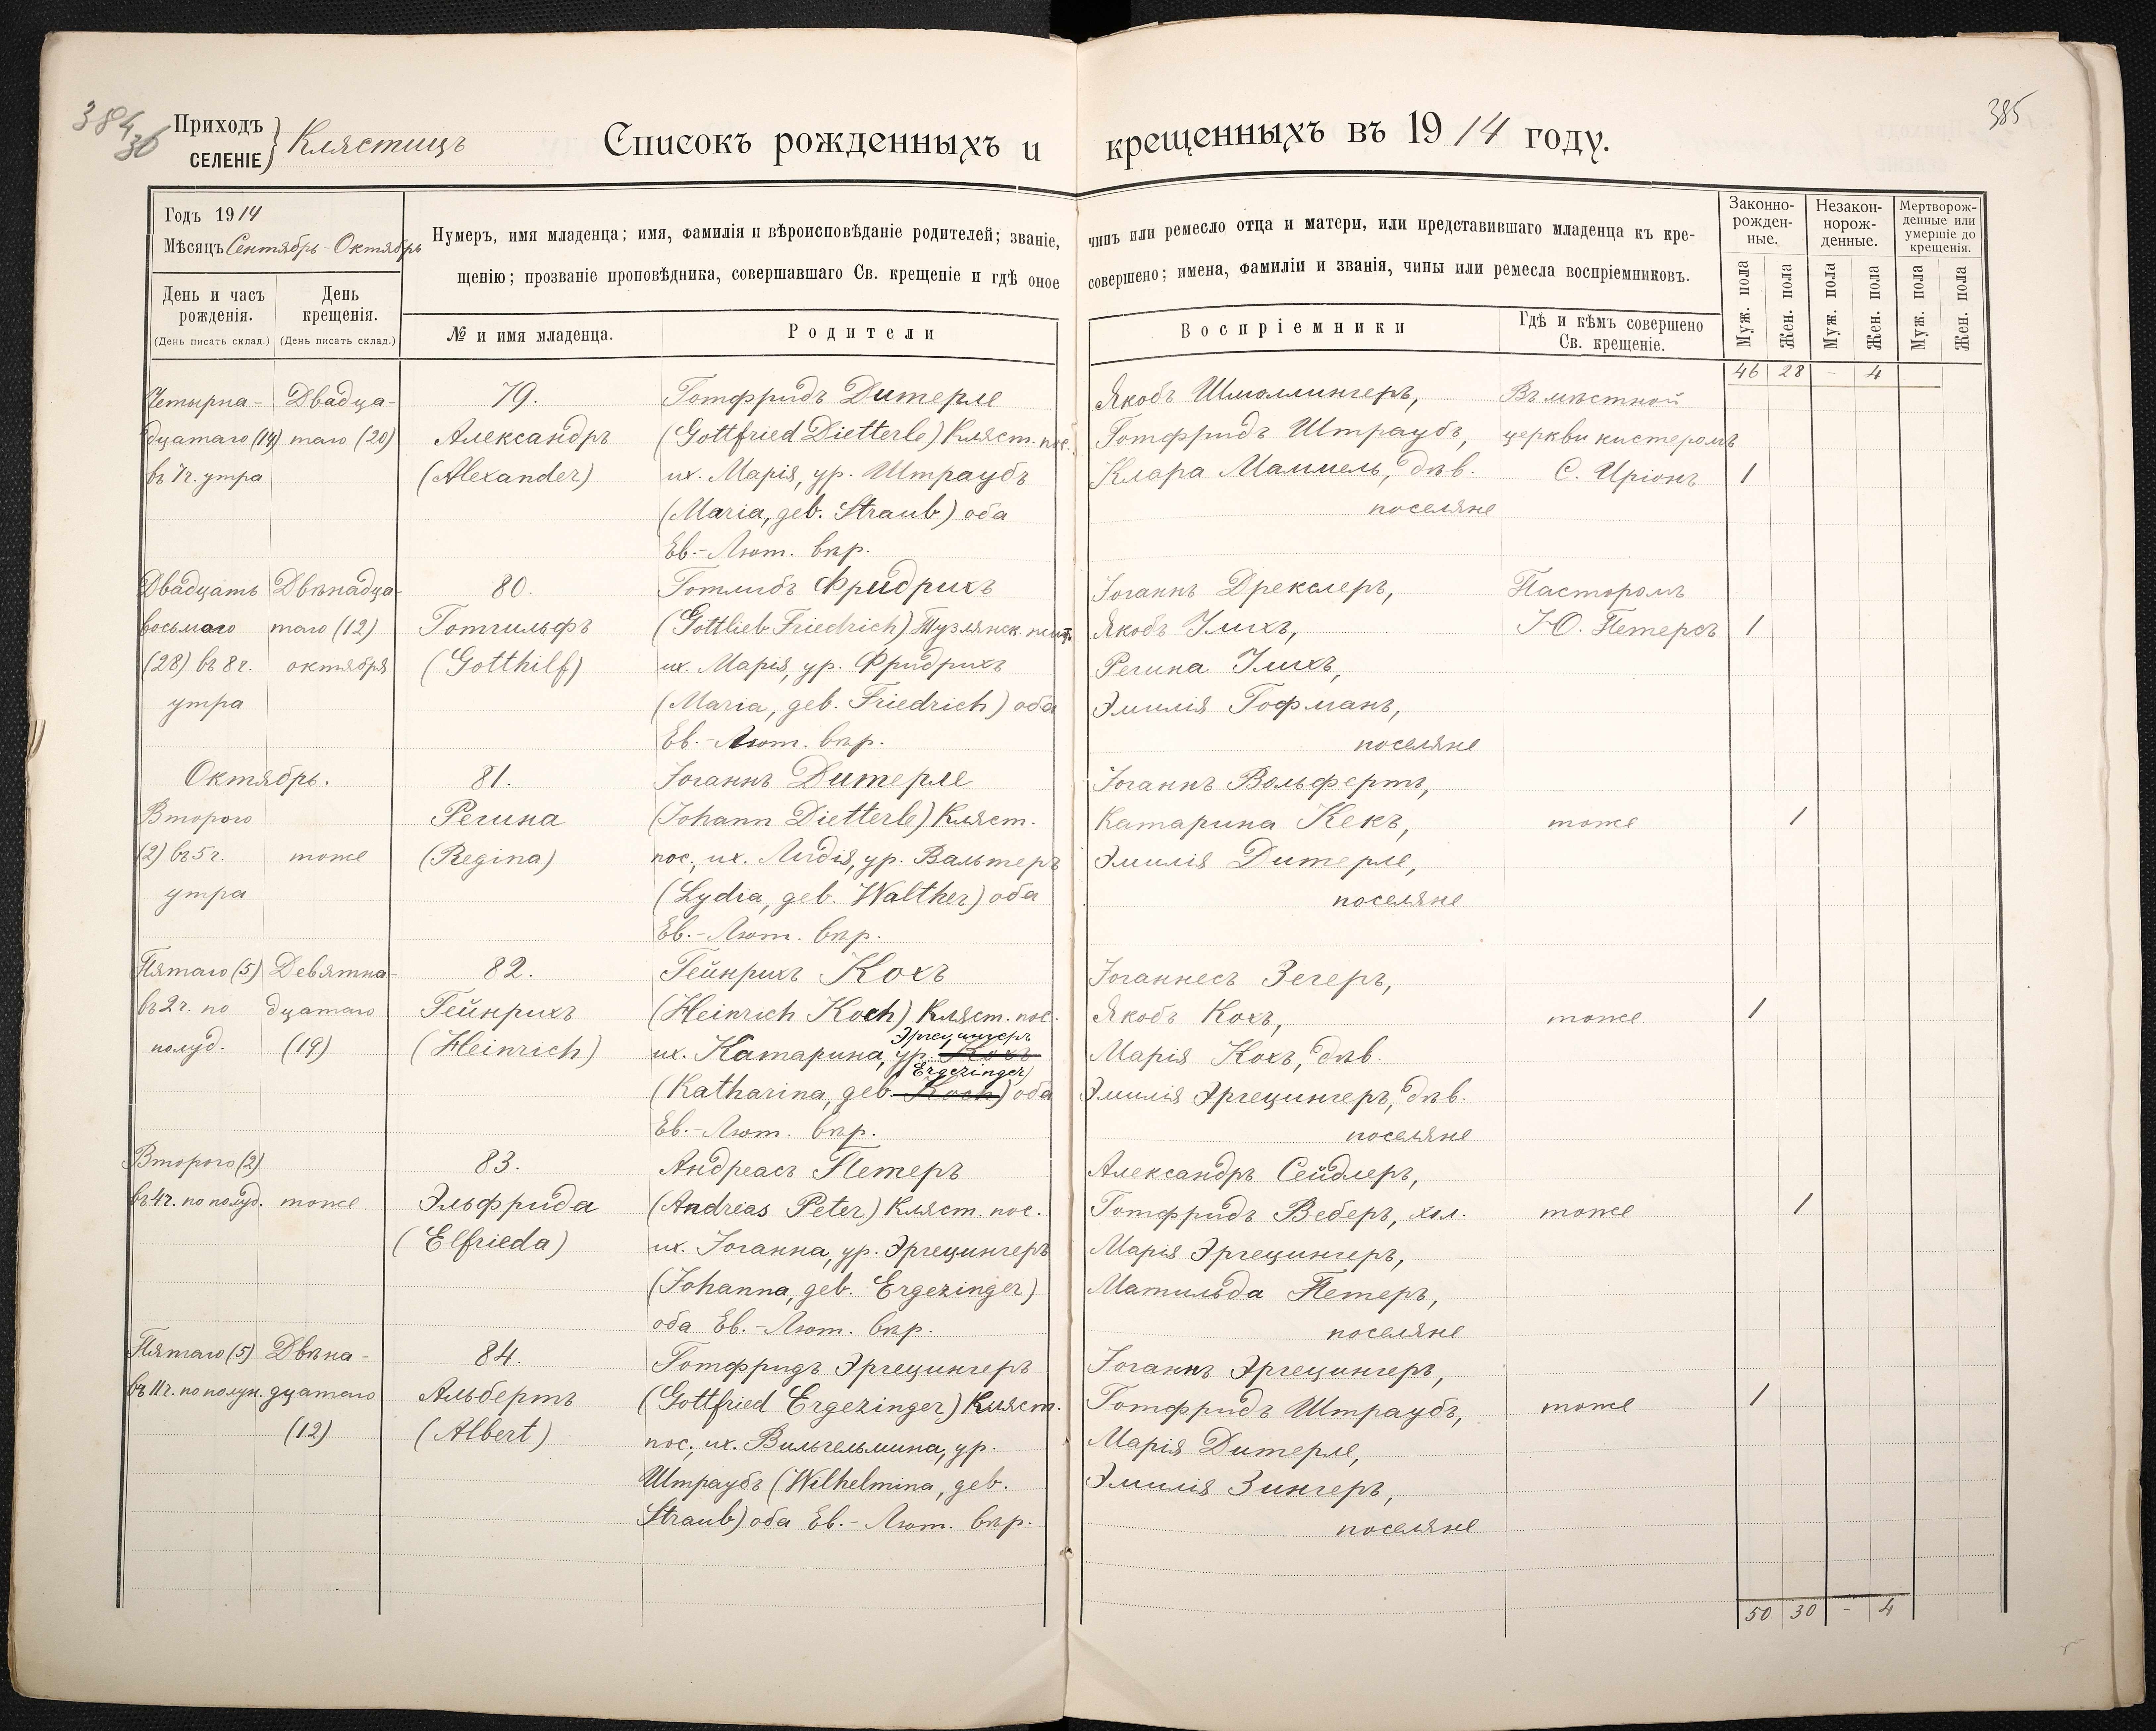 384
36
385
Приходъ
СЕЛЕНІЕ
Клястицъ
Списокъ рожденныхъ и крещенныхъ въ 1914 году.
Годъ 1914
Мѣсяцъ Сентябрь - Октябрь
Нумеръ, имя младенца; имя, фамилія и вѣроисповѣданіе родителей; званіе, чинъ или ремесло отца и матери, или представившаго младенца къ кре-
щенію; прозваніе проповѣдника, совершавшаго Св. крещеніе и гдѣ оное совершено; имена, фамиліи и званія, чины или ремесла воспріемниковъ.
Законно-
рожден-
ные.
Незакон-
норож-
денные.
Мертворож-
денные или
умершіе до
крещенія.
День и часъ
рожденія.
(День писать склад.)
День
крещенія.
(День писать склад.)
№ и имя младенца.
Родители
Воспріемники
Гдѣ и кѣмъ совершено
Св. крещеніе.
Муж. пола
Жен. пола
Муж. пола
Жен. пола
Муж. пола
Жен. пола
46 28 - 4
Четырна-
дцатаго (14)
въ 7 ч. утра
Двадца-
таго (20)
79.
Александръ
(Alexander)
Готфридъ Дитерле
(Gottfried Dietterle) Кляст. пос.
их. Марія, ур. Штраубъ
(Maria, geb. Straub) оба
Ев.-Лют. вѣр.
Якобъ Шмоллингеръ,
Готфридъ Штраубъ,
Клара Маммель, дѣв.
поселяне
Въ мѣстной
церкви кистеромъ
С. Иріонъ
1
Двадцать
восьмаго
(28) въ 8 ч.
утра
Двѣнадца-
таго (12)
октября
80.
Готгильфъ
(Gotthilf)
Готлибъ Фридрихъ
(Gottlieb Friedrich) Тузлянск.
их. Марія, ур. Фридрихъ
(Maria, geb. Friedrich) оба
Ев.-Лют. вѣр.
Іоганнъ Дрекслеръ,
Якобъ Улихъ,
Регина Улихъ,
Эмилія Гофманъ,
поселяне
Пасторомъ
Ю. Петерсъ
1
Октябрь.
Второго
(2) въ 5 ч.
утра
тоже
81.
Регина
(Regina)
Іоганнъ Дитерле
(Johann Dietterle) Кляст.
пос., их. Лидія, ур. Вальтеръ
(Lydia, geb. Walther) оба
Ев.-Лют. вѣр.
Іоганнъ Вольфертъ,
Катарина Кекъ,
Эмилія Дитерле,
поселяне
тоже
1
Пятаго (5)
въ 2 ч. по
полуд.
Девятна-
дцатаго
(19)
82.
Гейнрихъ
(Heinrich)
Гейнрихъ Кохъ
(Heinrich Koch) Кляст. пос.
Эргецингеръ
их. Катарина, ур. Кохъ
Ergezinger
(Katharina, geb. Koch) оба
Ев.-Лют. вѣр.
Іоганнесъ Зегеръ,
Якобъ Кохъ,
Марія Кохъ, дѣв.
Эмилія Эргецингеръ, дѣв.
поселяне
тоже
1
Второго (2)
въ 4 ч. по полуд.
тоже
83.
Эльфрида
(Elfrieda)
Андреасъ Петеръ
(Andreas Peter) Кляст. пос.
их. Іоганна, ур. Эргецингеръ
(Johanna, geb. Ergezinger)
оба Ев.-Лют. вѣр.
Александръ Сейдлеръ,
Готфридъ Веберъ, хол.
Марія Эргецингеръ,
Матильда Петеръ,
поселяне
тоже
1
Пятаго (5)
въ 11 ч. по полун.
Двѣна-
дцатаго
(12)
84.
Альбертъ
(Albert)
Готфридъ Эргецингеръ
(Gottfried Ergezinger) Кляст.
пос., их. Вильгельмина, ур.
Штраубъ (Wilhelmina, geb.
Straub) оба Ев.-Лют. вѣр.
Іоганнъ Эргецингеръ,
Готфридъ Штраубъ,
Марія Дитерле,
Эмилія Зингеръ,
поселяне
тоже
1
50 30 - 4